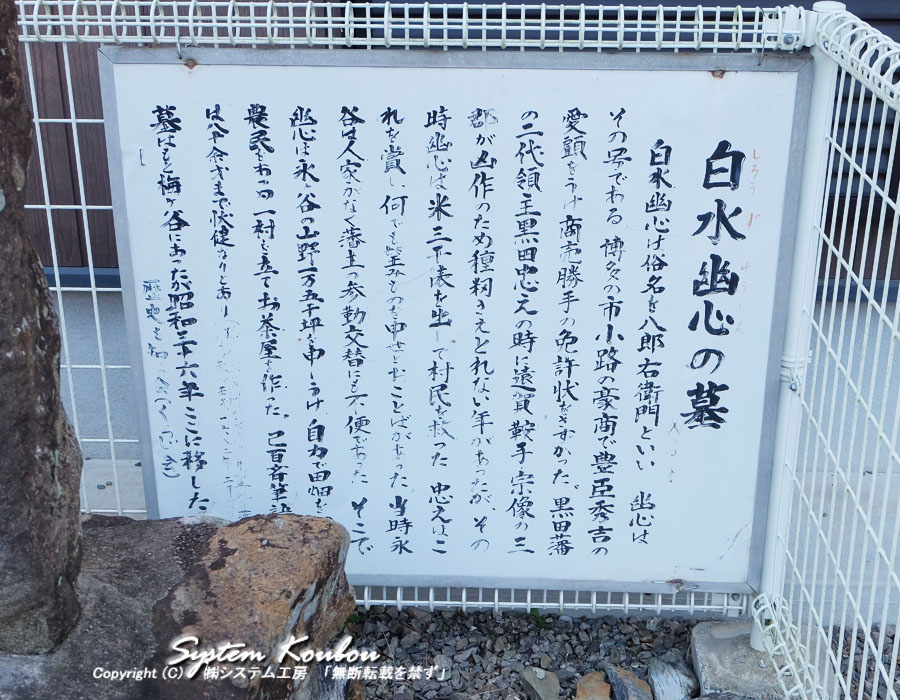 白水幽心の墓
しろうず ゆうしん
白水幽心は俗名を八郎右衛門といい 幽心は
その号である 博多の市小路の豪商で豊臣秀吉の
愛顧をうけ商売勝手の免許状をさずかった。黒田藩
の二代領主黒田忠之の時に遠賀鞍手宗像の三
郡が凶作のため種籾さえとれない年があったが、その
時幽心は米三千俵を出して村民を救った 忠之はこ
れを賞し、何でも望みのものを申せとおことばがあった 当時永
谷は人家がなく藩主の参勤交替にも不便であった そこで
幽心は永谷の山野一万五千坪を申しうけ 自力で田畑を
農民をわかち一村を立てお茶屋を作った。
は八十余才まで快健なりとあり
墓はもと梅ヶ谷にあったが昭和三十六年ここに移した
歴史を
System Koubou
Copyright (C) ㈱システム工房 「無断転載を禁ず」